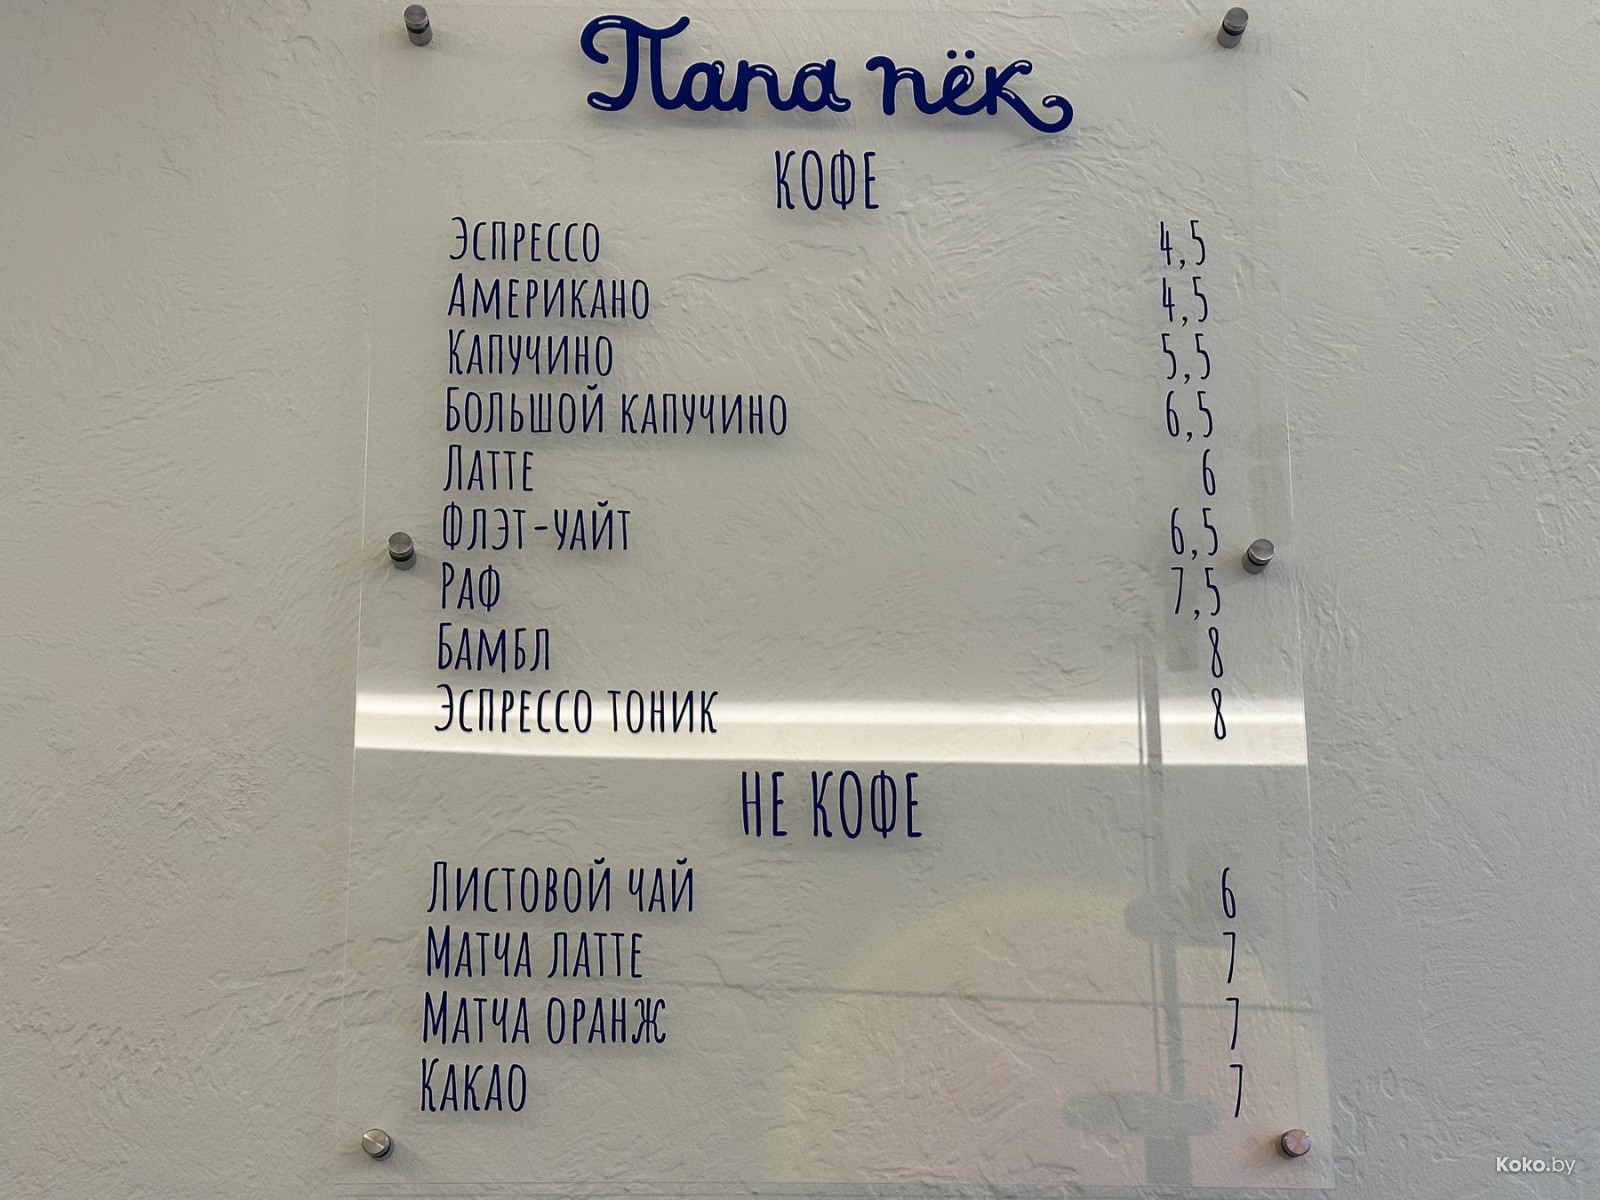 Папа пёк
КОФЕ
Эспрессо 4,5
Американо 4,5
Капучино 5,5
Большой капучино 6,5
Латте 6
Флэт-уайт 6,5
Раф 7,5
Бамбл 8
Эспрессо тоник 8
НЕ КОФЕ
Листовой чай 6
Матча латте 7
Матча оранж 7
Какао 7
Koko.by